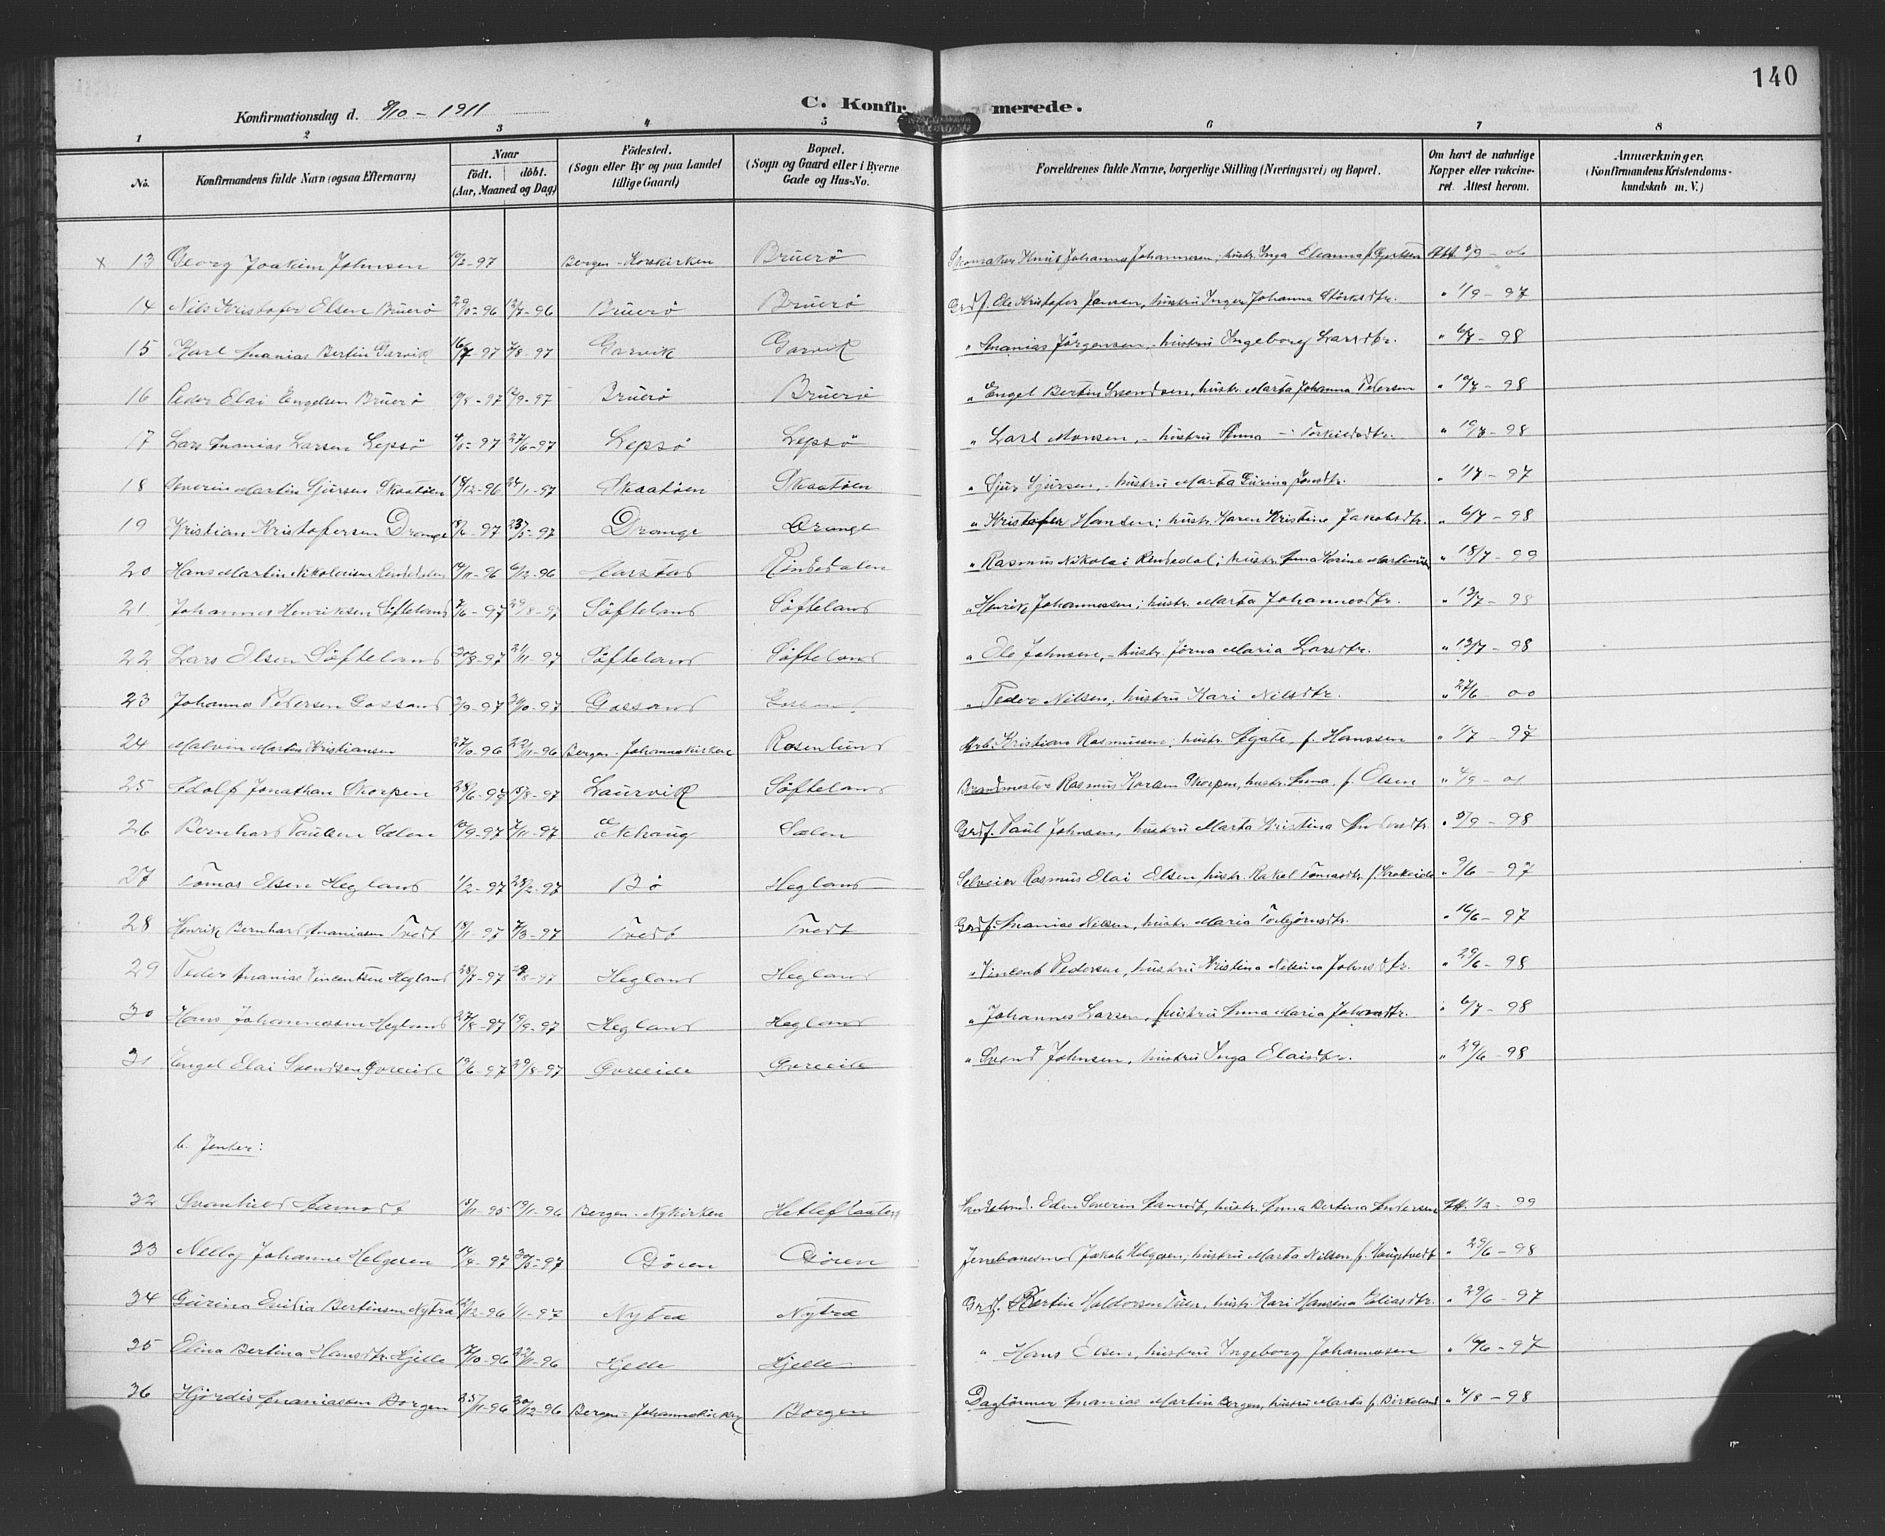 140
C. Konfirmerede.
Konfirmationsdag d. 8/10 - 1911
1 2 3 4 5 6 7 8
No. Konfirmandens fulde Navn (ogsaa Efternavn) Naar födt. döbt. (Aar, Maaned og Dag) Födested. (Sogn eller By og paa Landet tillige Gaard) Bopæl. (Sogn og Gaard eller i Byerne Gade og Hus-No. Forældrenes fulde Navne, borgerlige Stilling (Næringsvei) og Bopæl. Om havt de naturlige Kopper eller vakcineret. Attest herom. Anmærkninger. (Konfirmandens Kristendomskundskab m. V.)
x 13 Georg Joakim Johnsen 10/2-97 Bergen - Korskirken Bruerö Skomaker Knut Johannes Johannesen, hustr. Inga Elianna f. Gjertsen Att. 5/9 - 06
14 Nils Kristofer Olsen Bruerö 29/5-96 12/7-96 Bruerö Bruerö Grdf. Ole Kristofer Jansen, hustru Inger Johanna Störksdtr. " 1/9 - 97
15 Karl Ananias Bertin Garvik 16/7-97 /8-97 Garvik Garvik " Ananias Jörgensen, hustru Ingeborg Larsdtr. " 6/7 - 98
16 Peder Elai Engelsen Bruerö /8-97 12/9-97 Bruerö Bruerö " Engel Bertin Svendsen, hustr. Marta Johanna Pedersen " 19/7 - 98
17 Lars Ananias Larsen Lepsö 4/5-97 27/6-97 Lepsö Lepsö " Lars Monsen, - hustru Anna - Torkildsdtr. " 19/7 - 98
18 Severin Martin Sjursen Skaatöen 18/12-96 24/1-97 Skaatöen Skaatöen " Sjur Sjursen, - hustru Marta Gurina Jonsdtr. " 1/7 - 97
19 Kristian Kristofersen Drange 97 23/5-97 Drange Drange " Kristofer Hansen; hustr. Karen Kristine Jakobsdtr. " 6/7 - 98
20 Hans Martin Nikolaisen Rendedalen 14/11-96 6/12-96 Aarstad Rindedalen " Rasmus Nikolai Rendedal; hustr. Anna Karine " 18/7 - 99
21 Johannes Henriksen Söfteland 7/6-97 29/8-97 Söfteland Söfteland " Henrik Johannessen; hustr. Marta Johannesdtr. " 13/7 - 98
22 Lars Olsen Söfteland 30/8-97 21/11-97 Söfteland Söfteland " Ole Johnsen, - hustr. Jörna Maria Larsdtr. " 13/7 - 98
23 Johannes Pedersen Gassand 2/9-97 /10-97 Gassand " Peder Nilsen, hustru Kari Nilsdtr. " 27/6 - 00
24 Malvin Martin Kristiansen 27/10-96 22/11-96 Bergen - Johanneskirken Rosenlund Arb. Kristian Rasmussen; hustr. Agate f. Hanssen " 1/7 - 97
25 Adolf Jonathan Skorpen 28/6-97 15/8-97 Laurvik Söfteland Brandmester Rasmus Skorpen, hustr. Anna f. Olsen " 4/9 - 01
26 Bernhard Paulsen Sælen 10/9-97 7/11-97 Ekhaug Sælen Grdf. Paul Johnsen, hustru Marta Kristina " /9 - 98
27 Tomas Olsen Hegland 1/2-97 28/2-97 Bö Hegland Selveier Rasmus Elai Olsen, hustr. Rakel Tomasdtr. f. Krokeide " 9/6 - 97
28 Henrik Bernhard Ananiassen Tvedt 18/1-97 7/3-97 Tvedt Tvedt Grdf. Ananias Nilsen, hustr. Maria Torbjörnsdtr. " 16/6 - 97
29 Peder Ananias Vincentsen Hegland 28/7-97 29/8-97 Hegland Hegland " Vincent Pedersen, hustru Kristina Nilsina Johnsdtr. " 29/6 - 98
30 Hans Johannessen Hegland 27/8-97 19/9-97 Hegland Hegland " Johannes Larsen, hustru Anna Maria Johnsdtr. " 6/7 - 98
31 Engel Elai Svendsen Goreeide 19/6-97 29/8-97 Goreeide Goreeide " Svend Johnsen, hustru Inga Elaisdtr. " 29/6 - 98
b. Jenter:
32 Svanhild Aamodt 15/11-95 19/1-96 Bergen - Nykirken Hetleflaaten Severin Aamodt, hustr. Anna Bertina Andersen Att. 1/2 - 99
33 Nelly Johanne Helgesen 14/4-97 30/5-97 Gören Gören Jernbanemand Jakob Helgesen; hustru Marta Nilsen f. Haugtvedt " 29/6 - 98
34 Gurina Emilia Bertinsen Nytræ 12/12-96 /1-97 Nytræ Nytræ Grdf. Bertin Haldorsen, hustr. Kari Hansina Eliasdtr. " 29/6 - 97
35 Elina Bertina Hansdtr. Hjelle 17/10-96 22/11-96 Hjelle Hjelle " Hans Olsen, hustru Ingeborg Johannessen " 16/6 - 97
36 Hjördis Ananiassen Borgen 25/11-96 20/12-96 Bergen - Johanneskirken Borgen Daglönner Ananias Martin Borgen, hustru Marta f. Birkeland " 4/8 - 98